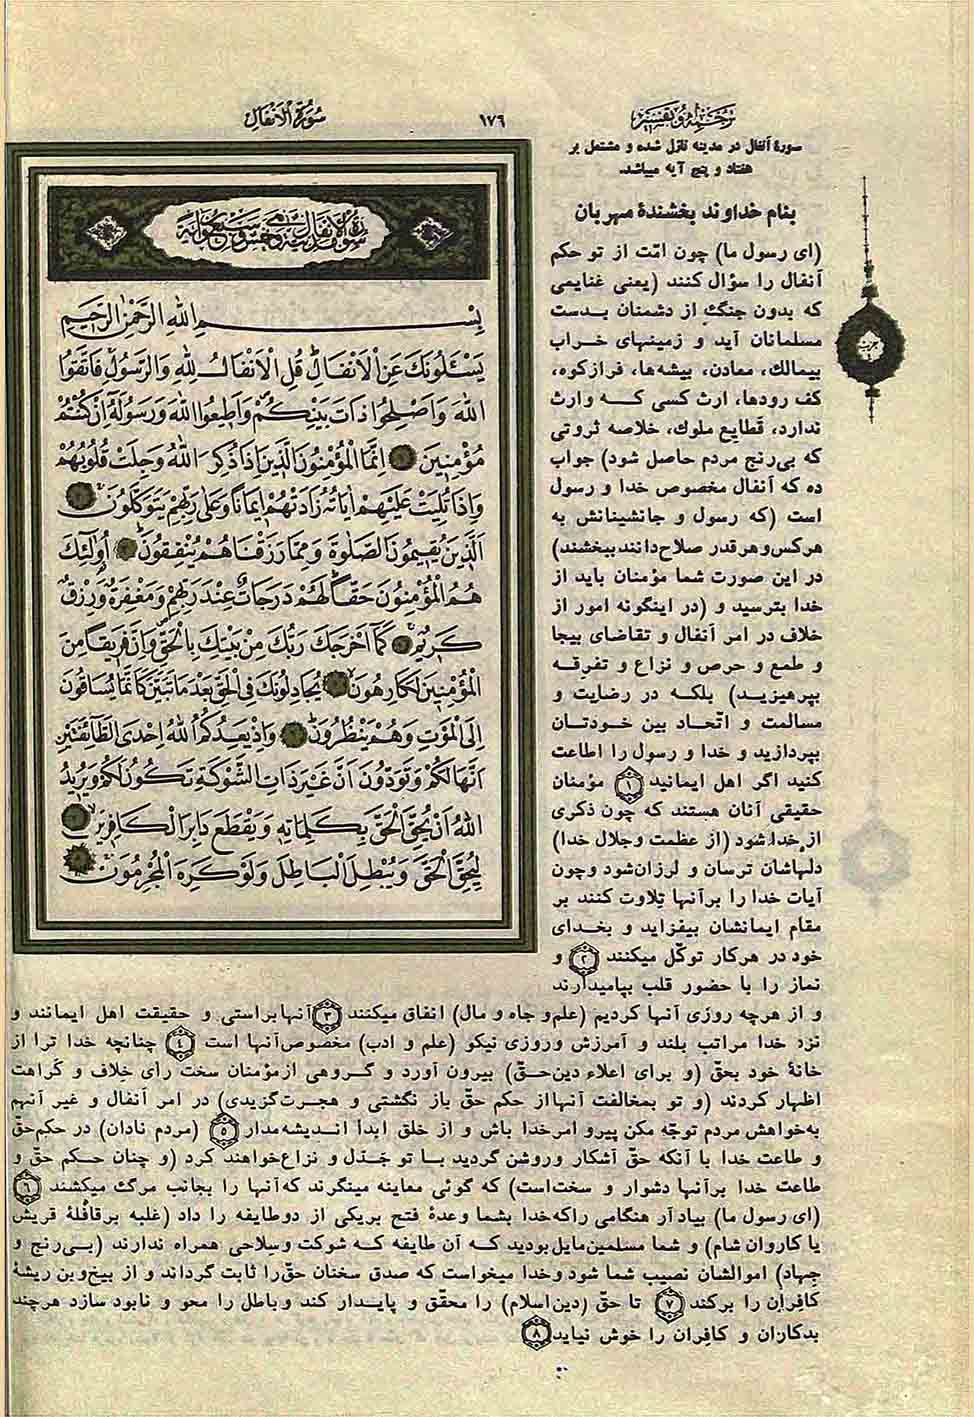 سُورَةُ الْاَنْفٰالِ
١٧٦
ترجمه و تفسير
سورهٔ انفال در مدینه نازل شده و مشتمل بر
هفتاد و پنج آیه میباشد.
بنام خداوند بخشندهٔ مهربان
(ای رسول ما) چون امّت از تو حکم
انفال را سؤال کنند (یعنی غنایمی
که بدون جنگ از دشمنان بدست
مسلمانان آید و زمینهای خراب
بیمالك، معادن، بیشه‌ها، فرازکوه،
کف رودها، ارث کسی که وارث
ندارد، قطایع ملوك، خلاصه ثروتی
که بی‌رنج مردم حاصل شود) جواب
ده که انفال مخصوص خدا و رسول
است (که رسول و جانشینانش به
هرکس و هر قدر صلاح دانند ببخشند)
در این صورت شما مؤمنان باید از
خدا بترسید و (در اینگونه امور از
خلاف در امر انفال و تقاضای بیجا
و طمع و حرص و نزاع و تفرقه
بپرهیزید) بلکه در رضایت و
مسالمت و اتّحاد بین خودتان
بپردازید و خدا و رسول را اطاعت
کنید اگر اهل ایمانید ١ مؤمنان
حقیقی آنان هستند که چون ذکری
از خدا شود (از عظمت و جلال خدا)
دلهاشان ترسان و لرزان شود و چون
آیات خدا را بر آنها تلاوت کنند بر
مقام ایمانشان بیفزاید و بخدای
خود در هر کار توکّل میکنند ٢ و
نماز را با حضور قلب بپامیدارند
و از هرچه روزی آنها کردیم (علم و جاه و مال) انفاق میکنند ٣ آنها براستی و حقیقت اهل ایمانند و
نزد خدا مراتب بلند و آمرزش و روزی نیکو (علم و ادب) مخصوص آنها است ٤ چنانچه خدا ترا از
خانهٔ خود بحقّ (و برای اعلاء دین حقّ) بیرون آورد و گروهی از مؤمنان سخت رأی خِلاف و کَراهت
اظهار کردند (و تو بمخالفت آنها از حکم حقّ باز نگشتی و هجرت گزیدی) در امر انفال و غیر آنهم
به خواهش مردم توجّه مکن پیرو امر خدا باش و از خلق ابداً اندیشه مدار ٥ (مردم نادان) در حکم حقّ
و طاعت خدا با آنکه حقّ آشکار و روشن گردید با تو جَدَل و نزاع خواهند کرد (و چنان حکم حقّ و
طاعت خدا بر آنها دشوار و سخت است) که گوئی معاینه مینگرند که آنها را بجانب مرگ میکشند ٦
(ای رسول ما) بیاد آر هنگامی را که خدا بشما وعدهٔ فتح بر یکی از دو طایفه را داد (غلبه بر قافلهٔ قریش
یا کاروان شام) و شما مسلمین مایل بودید که آن طایفه که شوکت و سلاحی همراه ندارند (بی‌رنج و
جهاد) اموالشان نصیب شما شود و خدا میخواست که صدق سخنان حقّ را ثابت گرداند و از بیخ و بن ریشهٔ
کافران را برکند ٧ تا حقّ (دین اسلام) را محقّق و پایدار کند و باطل را محو و نابود سازد هرچند
بدکاران و کافران را خوش نیاید ٨
بِسْمِ اللهِ الرَّحْمٰنِ الرَّحيمِ
يَسْـَٔلُونَكَ عَنِ الْاَنْفٰالِ قُلِ الْاَنْفٰالُ لِلّٰهِ وَالرَّسُولِ فَاتَّقُوا
اللهَ وَاَصْلِحُوا ذٰاتَ بَيْنِكُمْ وَاَطيعُوا اللهَ وَرَسُولَهُ اِنْ كُنْتُمْ
مُؤْمِنينَ اِنَّمَا الْمُؤْمِنُونَ الَّذينَ اِذٰا ذُكِرَ اللهُ وَجِلَتْ قُلُوبُهُمْ
وَاِذٰا تُلِيَتْ عَلَيْهِمْ اٰيٰاتُهُ زٰادَتْهُمْ ايمٰانًا وَعَلىٰ رَبِّهِمْ يَتَوَكَّلُونَ
اَلَّذينَ يُقيمُونَ الصَّلٰوةَ وَمِمّٰا رَزَقْنٰاهُمْ يُنْفِقُونَ اُولٰئِكَ
هُمُ الْمُؤْمِنُونَ حَقًّا لَهُمْ دَرَجٰاتٌ عِنْدَ رَبِّهِمْ وَمَغْفِرَةٌ وَرِزْقٌ
كَريمٌ كَمٰا اَخْرَجَكَ رَبُّكَ مِنْ بَيْتِكَ بِالْحَقِّ وَاِنَّ فَريقًا مِنَ
الْمُؤْمِنينَ لَكٰارِهُونَ يُجٰادِلُونَكَ فِي الْحَقِّ بَعْدَ مٰا تَبَيَّنَ كَاَنَّمٰا يُسٰاقُونَ
اِلَى الْمَوْتِ وَهُمْ يَنْظُرُونَ وَاِذْ يَعِدُكُمُ اللهُ اِحْدَى الطّٰائِفَتَيْنِ
اَنَّهٰا لَكُمْ وَتَوَدُّونَ اَنَّ غَيْرَ ذٰاتِ الشَّوْكَةِ تَكُونُ لَكُمْ وَيُريدُ
اللهُ اَنْ يُحِقَّ الْحَقَّ بِكَلِمٰاتِهِ وَيَقْطَعَ دٰابِرَ الْكٰافِرينَ
لِيُحِقَّ الْحَقَّ وَيُبْطِلَ الْبٰاطِلَ وَلَوْ كَرِهَ الْمُجْرِمُونَ